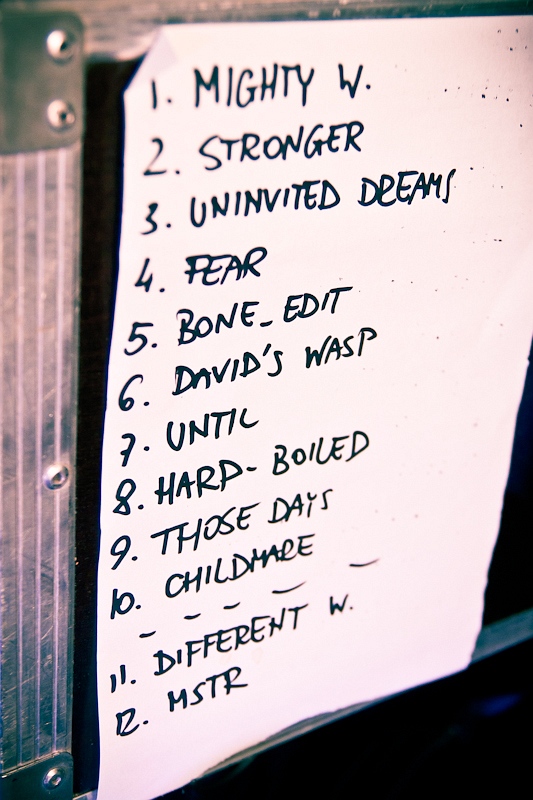 1. MIGHTY W.
2. STRONGER
3. UNINVITED DREAMS
4. FEAR
5. BONE_EDIT
6. DAVID'S WASP
7. UNTIL
8. HARD-BOILED
9. THOSE DAYS
10. CHILDMARE
- - - - -
11. DIFFERENT W.
12. MSTR